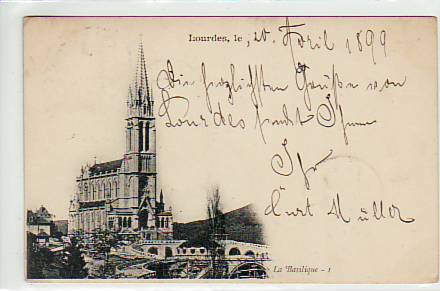 Lourdes, le 20. April 1899
Die herzlichsten Grüße von
Lourdes sendet Ihnen
Ihr
Curt Müller
La Basilique - 1